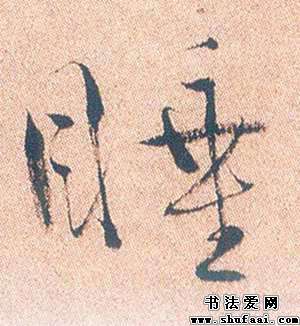 睡
书法爱网
www.shufaai.com